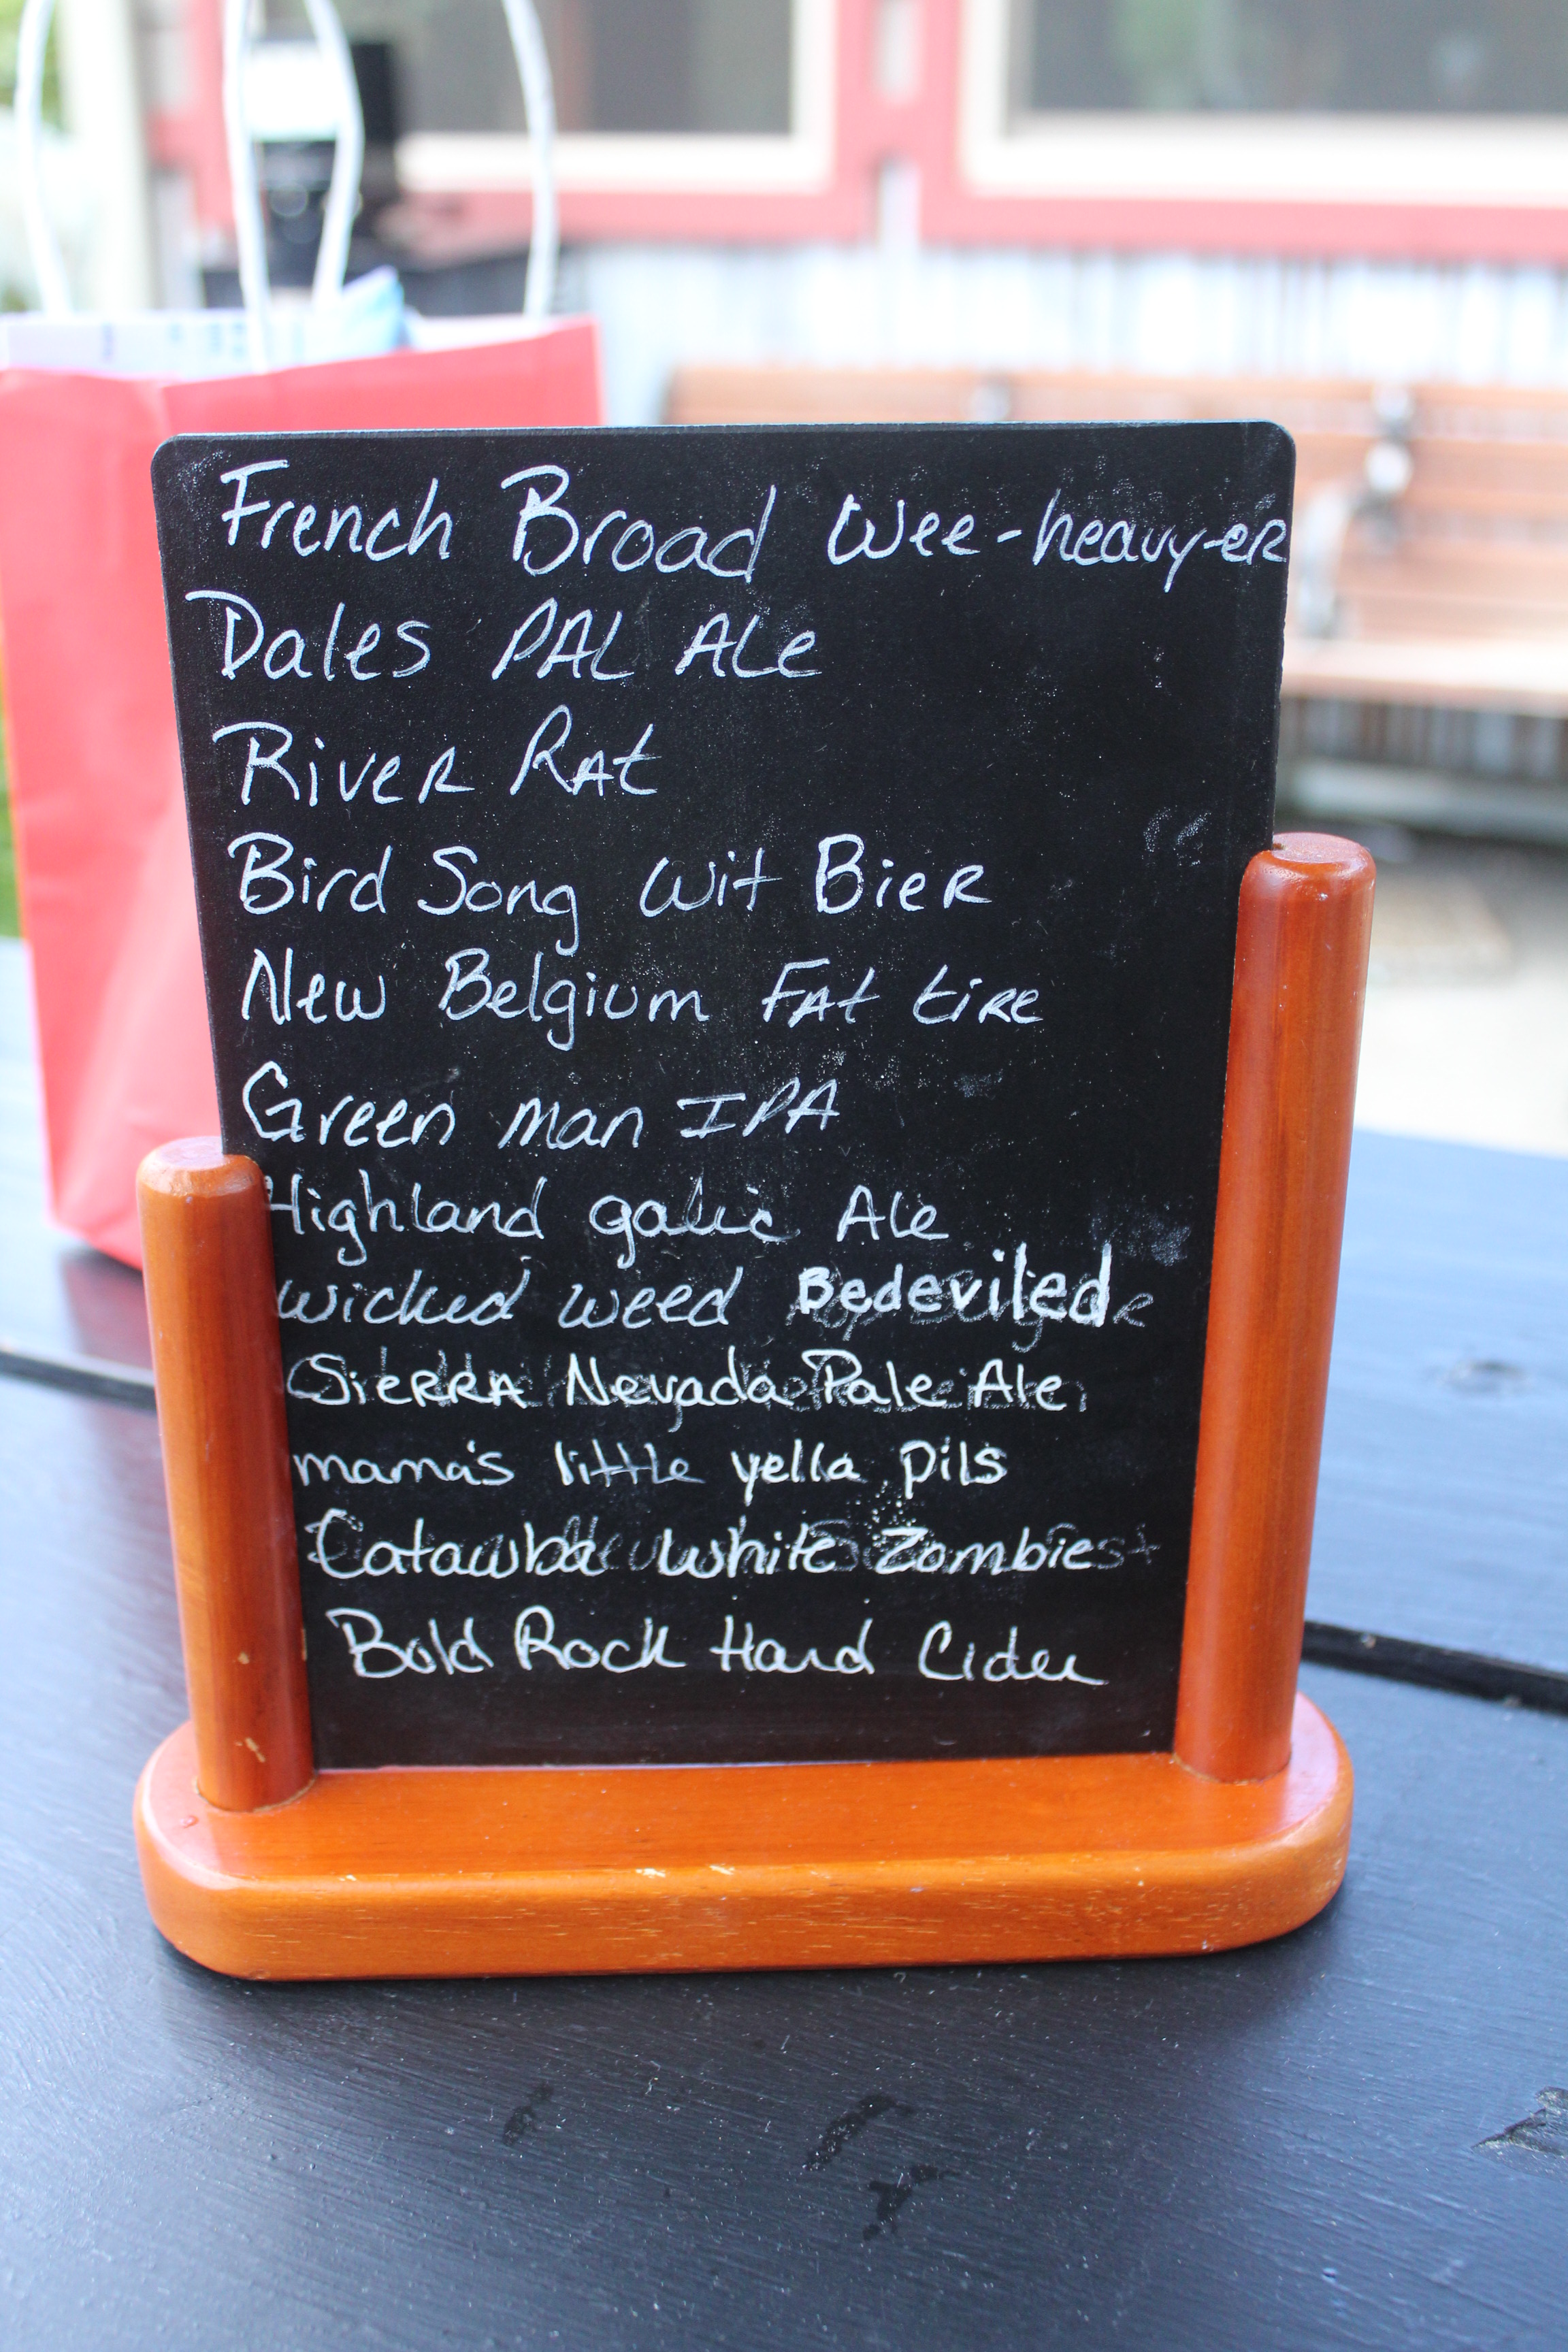 French Broad Wee-heavy-er
Dales PAL Ale
River Rat
Bird Song Wit Bier
New Belgium Fat tire
Green man IPA
Highland galic Ale
wicked weed Bedeviled
Sierra Nevada Pale Ale
mama's little yella pils
Catawba white Zombie
Bold Rock Hard Cider